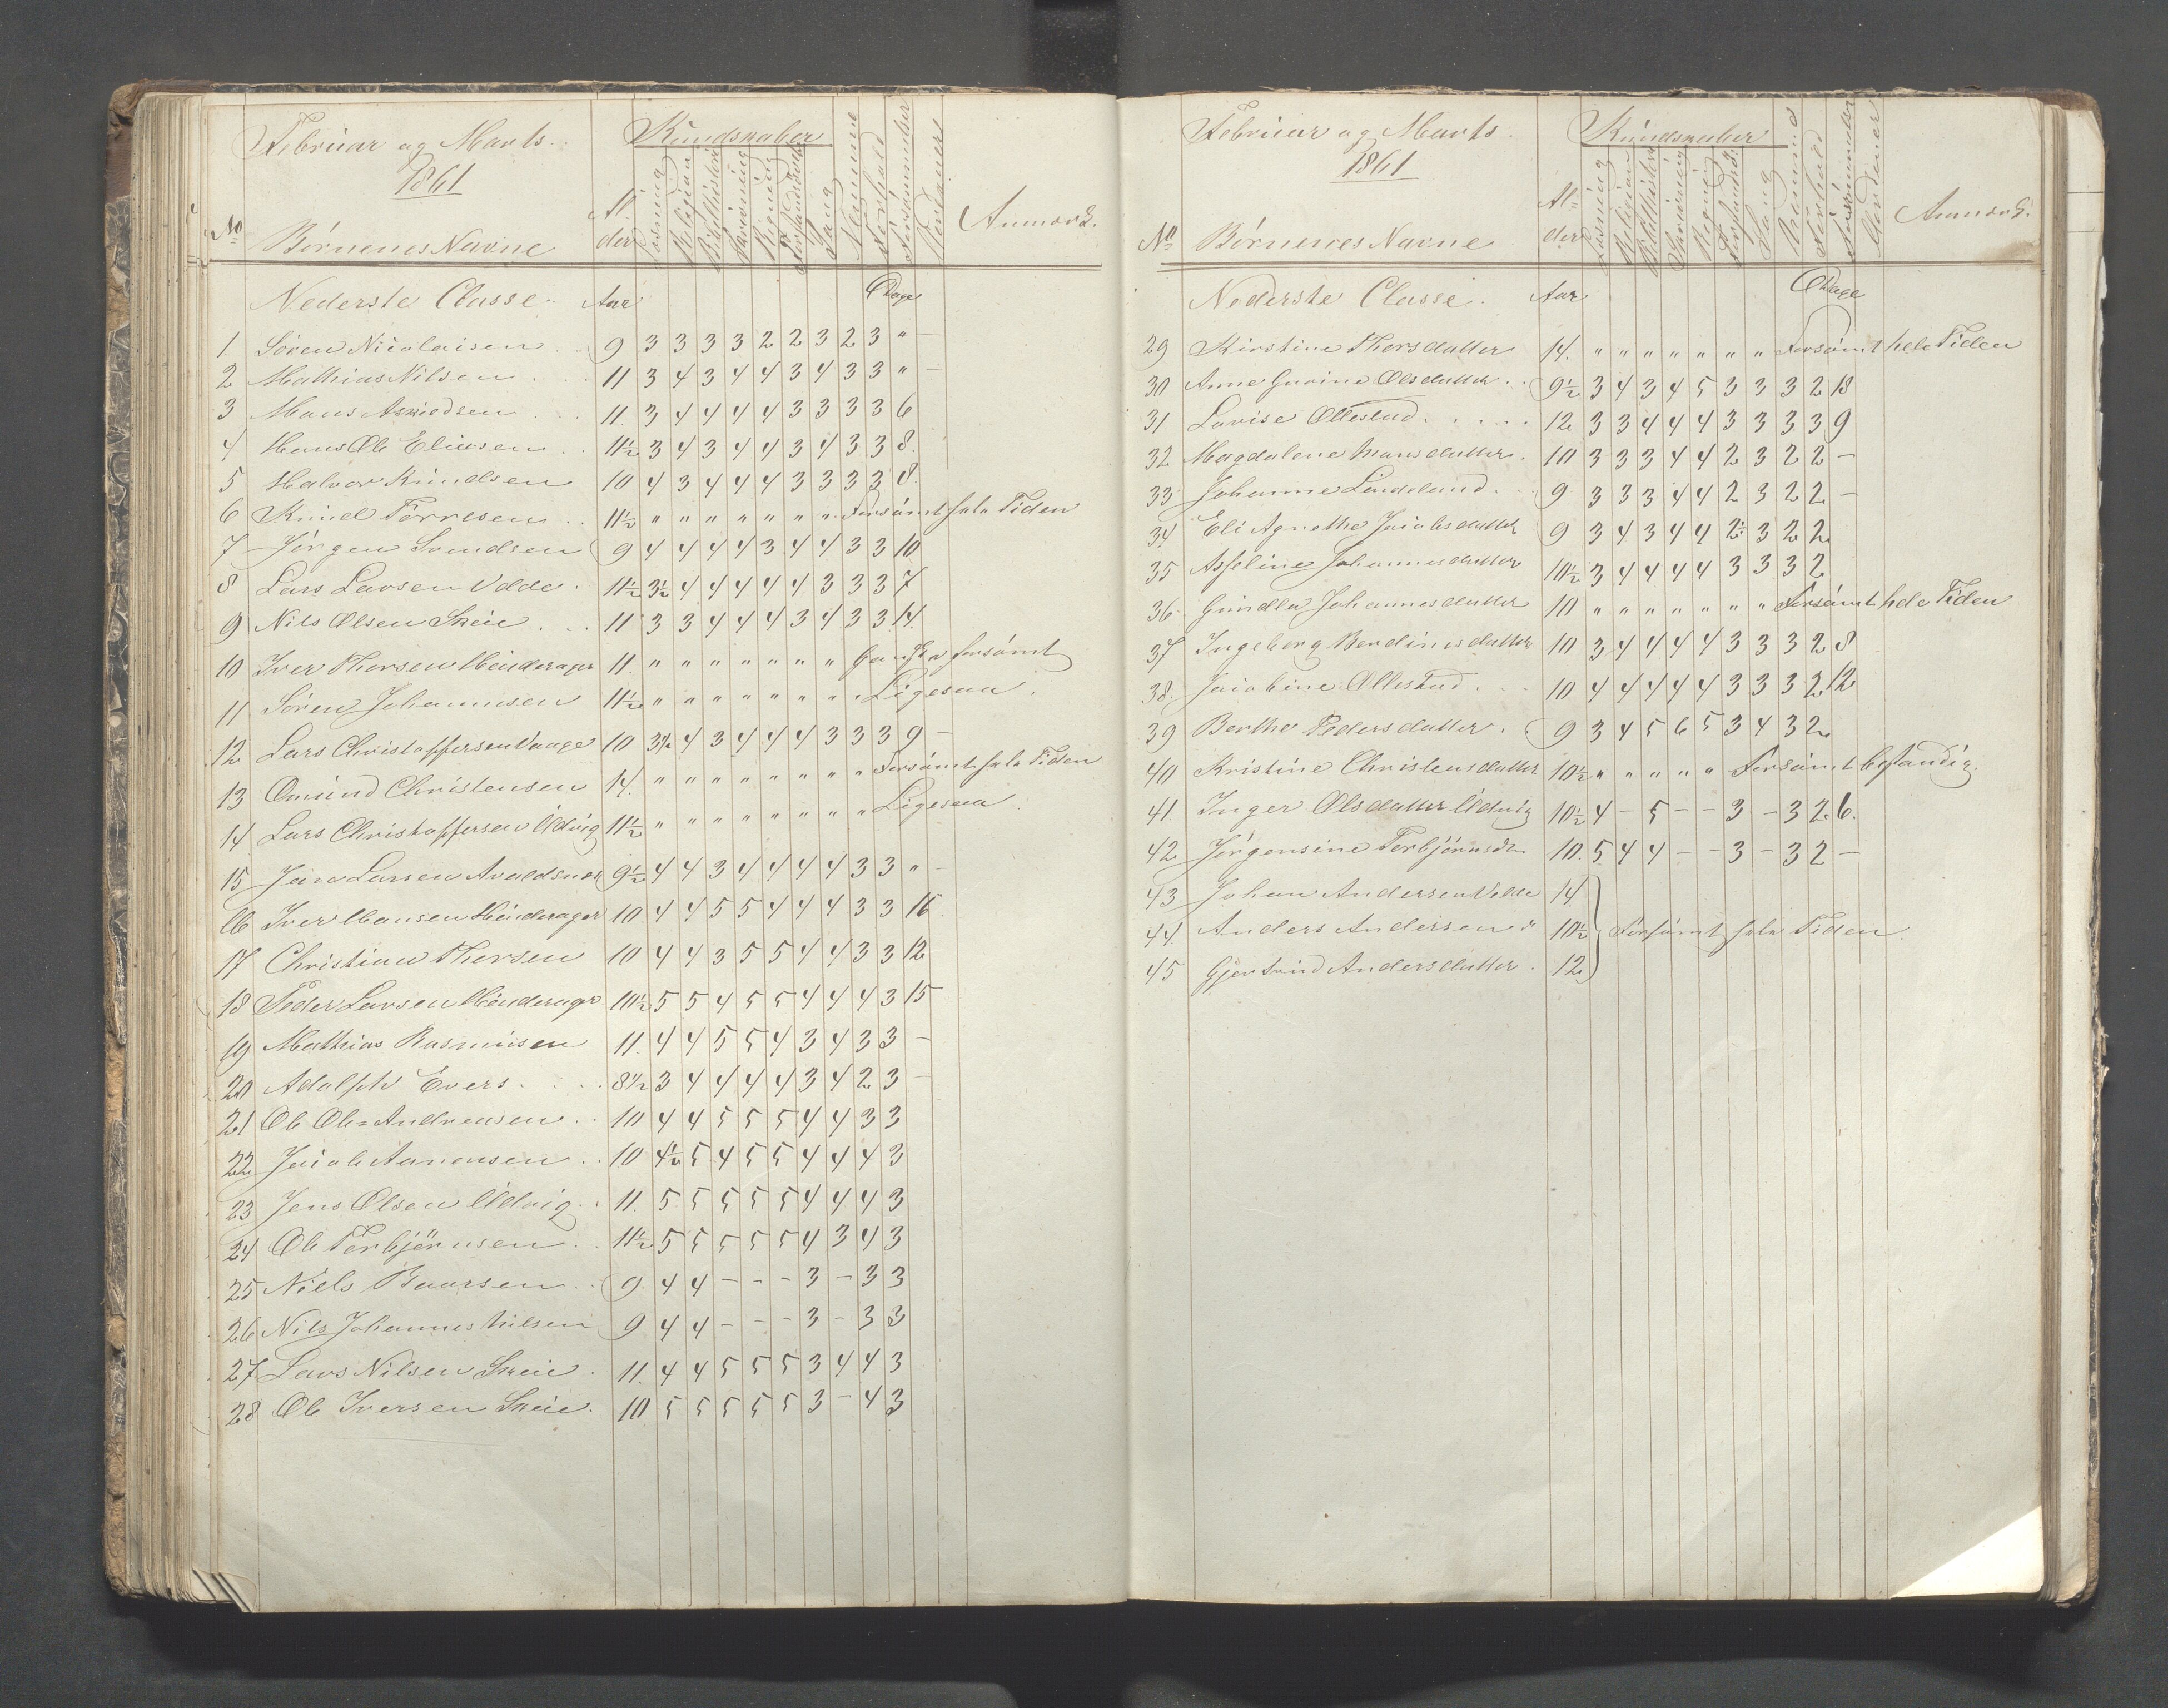 Februar og Marts.
1861
Kundskaber
No
Børnenes Navne
Al-
der
Læsning
Religion
Bibelhistorie
Skrivning
Regning
Forstandsøvelse
Sang
Nemme
Forhold
Forsømmelser
Anmærk.
Nederste Classe. Aar Dage
1. Søren Nicolaisen 9 3 3 3 3 2 2 3 2 3 " —
2 Mathias Nilsen 11 3 4 3 4 4 3 4 3 3 " —
3 Mons 11. 3 4 4 4 4 3 3 3 3 6
4 Hans Ole Eliasen 11½ 3 4 3 4 4 3 4 3 3 8.
5 Halvor Knudsen 10 4 3 4 4 4 3 3 3 3 8.
6 Knud Torresen 11½ " " " " " " " Forsømt hele Tiden
7 Jørgen Svendsen 9 4 4 4 4 3 4 4 3 3 10
8 Lars Larsen Velde. 11½ 3½ 4 4 4 4 4 3 3 3 7
9 Nils Olsen Skeie 11 3 3 4 4 4 3 4 3 3 14.
10 Iver Thorsen Mønderager 11. " " " " " " " Ganske forsømt
11 Søren Johannesen 11½ " " " " " " " Ligesaa.
12 Lars Christoffersen Vaage 10 3½ 4 3 4 4 4 3 3 3 9 —
13 Omund Christensen 14. " " " " " " " " Forsømt hele Tiden
14 Lars Christoffersen Udvig 11½ " " " " " " " " Ligesaa.
15 Jan Larsen Avaldsnes 9½ 4 4 3 4 4 4 4 3 3 " —
16 Iver Hansen Hinderager 10 4 4 5 5 4 4 4 3 3 16
17 Christian Thorsen 10 4 4 3 5 5 4 4 3 3 12
18 Peder Larsen Mønderager 10½ 5 5 4 5 5 4 4 4 3 15
19 Mathias Rasmusen 11. 4 4 5 5 4 3 4 3 3 —
20 Adolph Evers 8½ 3 4 4 4 4 3 4 2 3 —
21 Ole Ole Andreasen 10 4 4 5 5 5 4 4 3 3
22 Jacob Aanensen 10 4½ 5 4 5 5 4 4 4 3
23 Jens Olsen Udvig 11. 5 5 5 5 5 4 4 4 3
24 Ole Torbjørnsen 11½ 5 5 5 5 5 4 3 4 3
25 Niels Baarsen 9. 4 4 — - - 3 — 3 3
26 Nils Johannes Nilsen 9 4 4 - - - 3 - 3 3
27 Lars Nilsen Skeie. 11. 4 4 5 5 5 3 4 4 3
28 Ole Iversen Skeie. 10 5 5 5 5 5 3 - 4 3
Februar og Marts.
1861
Kundskaber
No
Børnenes Navne
Al-
der
Læsning
Religion
Bibelhistorie
Skrivning
Regning
Forstandsø.
Sang
Nemme
Forhold
Forsømmelser
Anmærk.
Nederste Classe. Aar Dage
29 Kirstine Thorsdatter 14. " " " " " " " Forsømt hele Tiden
30 Anne Gurine Olsdatter 9½ 3 4 3 4 5 3 3 3 2 18
31 Lovise Ollestad 12 3 3 4 4 4 3 3 3 3 9
32 Magdalene Monsdatter. 10 3 3 3 4 4 2 3 2 2 —
33 Johanne Lindeland. 9 3 3 3 4 4 2 3 2 2 —
34 Eli Agnethe Jacobsdatter 9 3 4 3 4 4 2½ 3 2 2
35 Asseline Johannesdatter 10½ 3 4 4 4 4 3 3 3 2
36. Gundla Johannesdatter 10 " " " " " " " Forsømt hele Tiden
37 Ingeborg Berdinesdatter 10 3 4 4 4 4 3 3 3 2 8
38. Jacobine Ollestad 10 4 4 4 4 4 3 3 3 2 12
39 Berthe Pedersdatter. 9 3 4 5 6 5 3 4 3 2
40 Kristine Christensdatter 10½ " " " " " Forsømt bestandig.
41 Inger Olsdatter Udvig 10½ 4 - 5 - - 3 - 3 2. 6.
42 Jørgensine Torbjørnsdr. 10. 5 4 4 - - 3 - 3 2 —
43 Johan Andersen Velde 14
44 Anders Andersen " 10½ Forsømt hele Tiden.
45 Gjertrud Andersdatter. 12